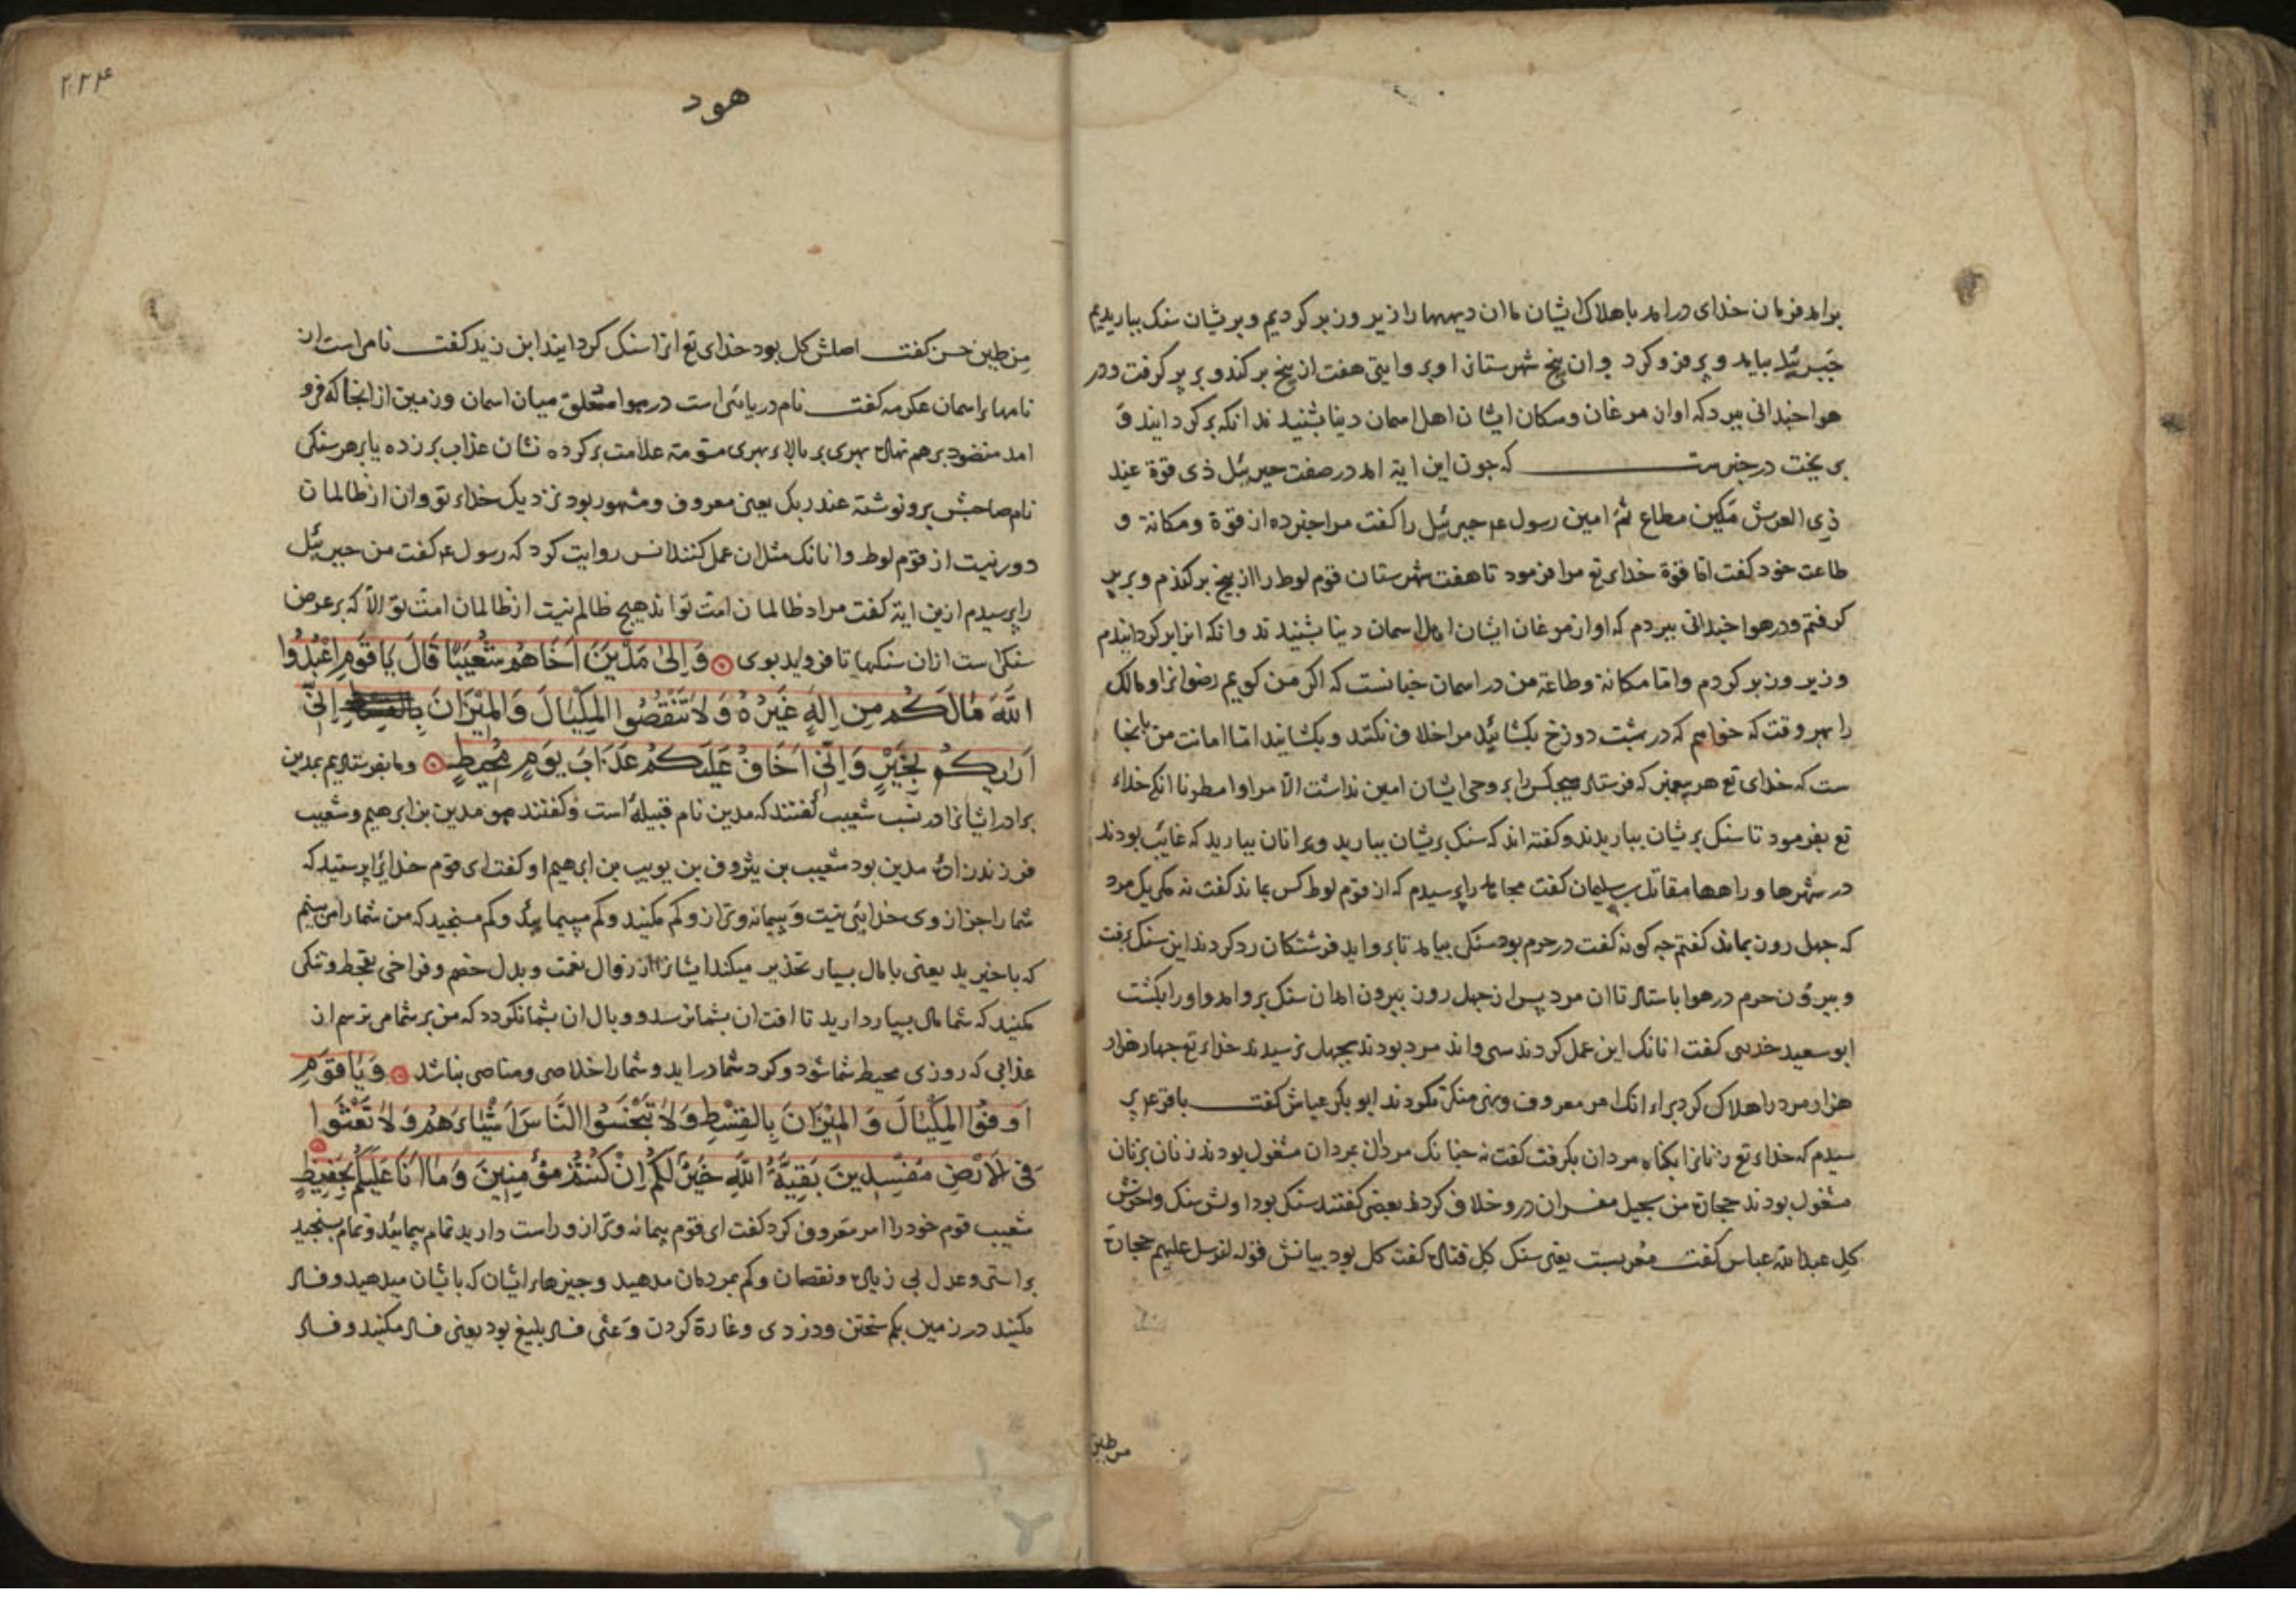 برامد فرمان خدای درامد باهلاک ایشان ما ان دیهها را زیر و زبر کردیم و بریشان سنک بباریدیم
جبرئیل بیامد و پر فرو کرد و ان پنج شهرستانرا و بروایتی هفت از بیخ برکند و بر پر کرفت و در
هوا جندانی ببرد که اواز مرغان و سکان ایشان اهل اسمان دینا بشنیدند انکه برکردانید و
بریخت در خبرست که جون این ایة امد در صفت جبرئیل ذی قوة عند
ذی العرش مکین مطاع ثم امین رسول عم جبرئیل را کفت مرا خبر ده از قوة و مکانة و
طاعت خود کفت اما قوة خدای تع مرا فرمود تا هفت شهرستان قوم لوط را از بیخ برکندم و بر پر
کرفتم و در هوا جندانی ببردم که اواز مرغان ایشان اهل اسمان دینا بشنیدند و انکه انرا برکردانیدم
و زیر و زبر کردم و اما مکانة و طاعة من در اسمان جنانست که اکر من کویم رضوانرا و مالک
را بهر وقت که خواهم که در بهشت دوزخ بکشائید مرا خلاف نکنند و بکشایند اما امانت من بانجا
ست که خدای تع هر پیغمبر که فرستاد هیجکس را بر وحی ایشان امین نداشت الا مرا و امطرنا انکه خداء
تع بفرمود تا سنک بریشان بباریدند و کفته اند که سنک بریشان ببارید و برانان ببارید که غایب بودند
در شهرها و راهها مقاتل بن سلیمان کفت مجاهد را پرسیدم که از قوم لوط کس بماند کفت نه مکر یک مرد
که جهل روز بماند کفتم جه کونه کفت در حرم بود سنکی بیامد تا برو اید فرشتکان رد کردند این سنک برفت
و بیرون حرم در هوا باستاد تا ان مرد پس از جهل روز بیرون امد ان سنک برو امد و او را بکشت
ابو سعید خدری کفت انانک این عمل کردند سی و اند مرد بودند بجهل نرسیدند خداء تع جهار هزار
هزار مرد را هلاک کرد براء انک امر معروف و نهی منکر نکردند ابو بکر عیاش کفت باقر را عم پر
سیدم که خداء تع زنانرا بکناه مردان بکرفت کفت نه جنانک مردان بمردان مشغول بودند زنان بزنان
مشغول بودند حجارة من سجیل مفسران درو خلاف کردند بعضی کفتند سنکی بود اولش سنک و اخرش
کل عبد الله عباس کفت معربست یعنی سنک کل قتاده کفت کل بود بیانش قوله لنرسل علیهم حجارة
من طین
۲۲۴
هود
من طین حسن کفت اصلش کل بود خدای تع انرا سنک کردانید ابن زید کفت نامی است از
نامهاء اسمان عکرمه کفت نام دریائی است در هوا معلق میان اسمان و زمین از انجا که فرو
امد منضود برهم نهاده بهری بر بالاء بهری مسومة علامت برکرده نشان عذاب برزده یا بر هر سنکی
نام صاحبش برو نوشته عند ربک یعنی معروف و مشهور بود نزدیک خداء تو و ان از ظالمان
دور نیست از قوم لوط و انانک مثل ان عمل کنند انس روایت کرد که رسول عم کفت من جبرئیل
را پرسیدم ازین ایة کفت مراد ظالمان امت تواند هیج ظالم نیست از ظالمان امت تو الا که بر عرض
سنکی ست ازان سنکها تا فرو اید بوی وَاِلیٰ مَدْیَنَ اَخَاهُمْ شُعَیْبًا قَالَ یَا قَوْمِ اعْبُدُوا
اللّٰهَ مَالَکُمْ مِنْ اِلٰهٍ غَیْرُهُ وَلَا تَنْقُصُوا المِکْیَالَ وَالمِیْزَانَ بِالقِسْطِ اِنِّی
اَرٰیکُمْ بِخَیْرٍ وَاِنِّی اَخَافُ عَلَیْکُمْ عَذَابَ یَوْمٍ مُحِیطٍ و ما بفرستادیم بمدین
برادر ایشانرا در نسب شعیب کفتند که مدین نام قبیلهٔ است و کفتند هو مدین بن ابرهیم و شعیب
فرزندزادهٔ مدین بود شعیب بن یثروف بن یوبیب بن ابرهیم او کفت ای قوم خدایرا پرستید که
شما را جز از وی خدایی نیست و پیمانه و ترازو کم مکنید و کم مپیمائید و کم مسنجید که من شما را می بینم
که باخیرید یعنی با مال بسیار تحذیر میکند ایشانرا از زوال نعمت و بدل خصم و فراخی بقحط و تنکی
مکنید که شما مال بسیار دارید تا افت ان بشما نرسد و وبال ان بشما نکردد که من بر شما می ترسم از
عذابی که روزی محیط شما شود و کرد شما دراید و شما را خلاصی و مناصی نباشد وَیَا قَوْمِ
اَوْفُوا المِکْیَالَ وَالمِیْزَانَ بِالقِسْطِ وَلَا تَبْخَسُوا النَّاسَ اَشْیَاءَهُمْ وَلَا تَعْثَوا
فِی الاَرْضِ مُفْسِدِینَ بَقِیَّةُ اللّٰهِ خَیْرٌ لَکُمْ اِنْ کُنْتُمْ مُؤْمِنِینَ وَمَا اَنَا عَلَیْکُمْ بِحَفِیظٍ
شعیب قوم خود را امر معروف کرد کفت ای قوم پیمانه و ترازو راست دارید تمام پیمائید و تمام بسنجید
براستی و عدل بی زیاده و نقصان و کم بمردمان مدهید و جیزهاء ایشان که بایشان میدهید و فساد
مکنید در زمین بکم سختن و دزدی و غارة کردن و عثی فساد بلیغ بود یعنی فساد مکنید و فساد